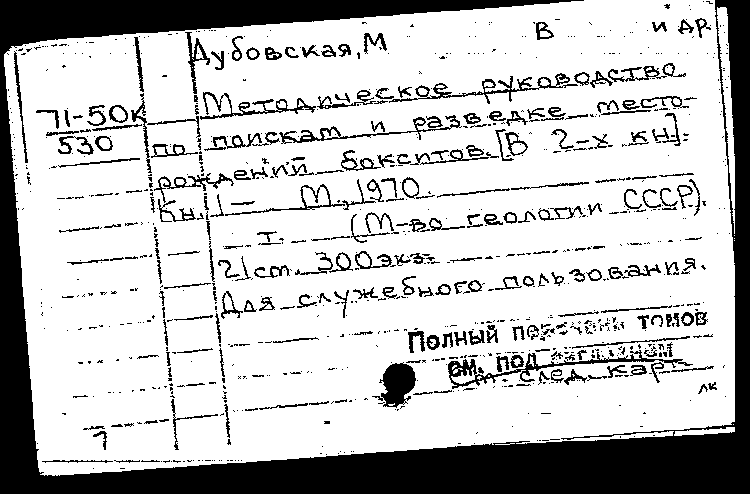 Дубовская, М В и др.
71-50к
530
Методическое руководство
по поискам и разведке место-
рождений бокситов. [В 2-х кн].
Кн. 1– М., 1970.
т. (М-во геологии СССР).
21 ст. 300 экз.
Для служебного пользования.
Полный перечень томов
см. под заглавием
См. след. карт.
лк
7